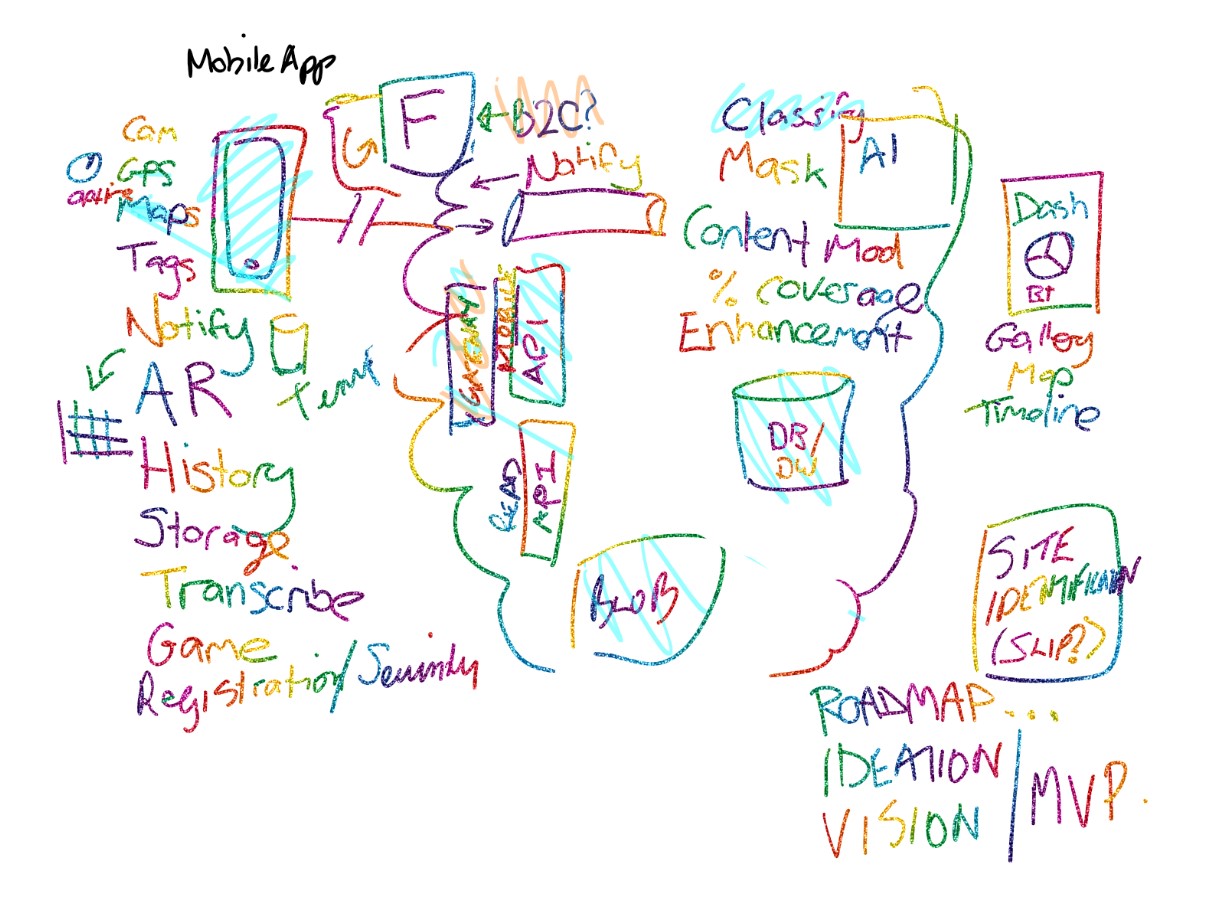 Mobile App
Cam
GPS
Maps
Tags
Notify
AR
History
Storage
Transcribe
Game
Registration/Security
F
B2C?
Notify
GATEWAY
MOBILE
API
READ
API
BLOB
Classify
Mask
AI
Content Mod
% Coverage
Enhancement
DB/
DW
Dash
BI
Gallery
Map
Timeline
SITE
(SLIP??)
ROADMAP...
IDEATION
VISION / MVP.